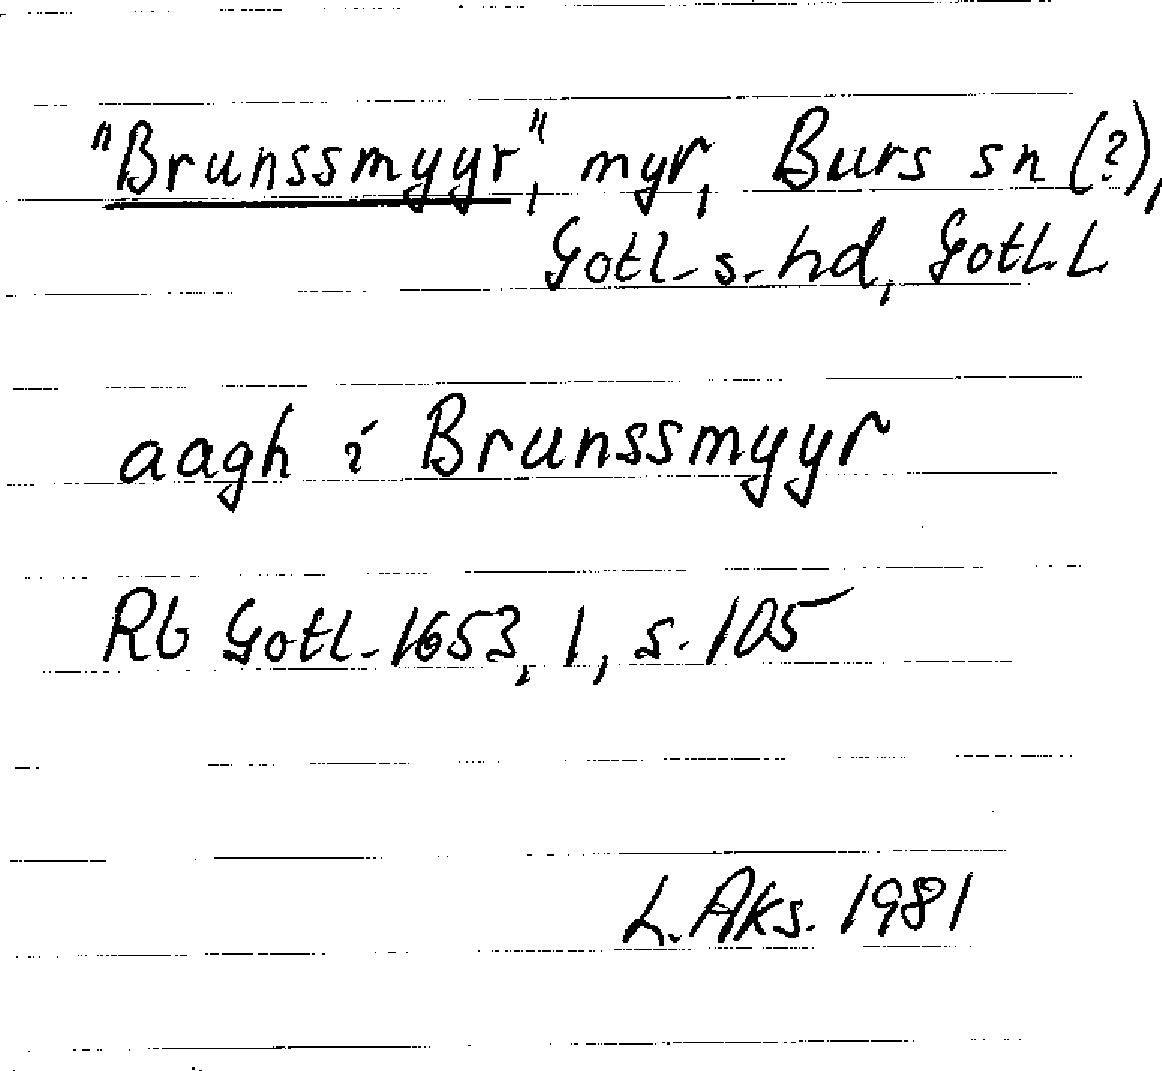 "Brunssmyyr", myr, Burs sn (?),
Gotl. s. hd, Gotl. L.
aagh i Brunssmyyr
Rb Gotl. 1653, 1, s. 105
L. Aks. 1981